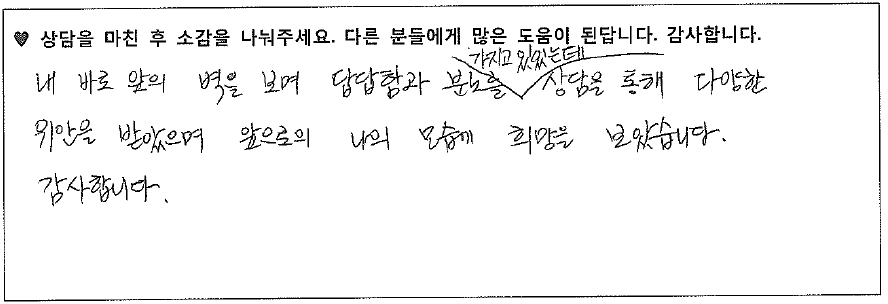 ♥ 상담을 마친 후 소감을 나눠주세요. 다른 분들에게 많은 도움이 된답니다. 감사합니다.
내 바로 앞의 벽을 보며 답답함과 분노를 가지고 있었는데 상담을 통해 다양한
위안을 받았으며 앞으로의 나의 모습에 희망을 보았습니다.
감사합니다.